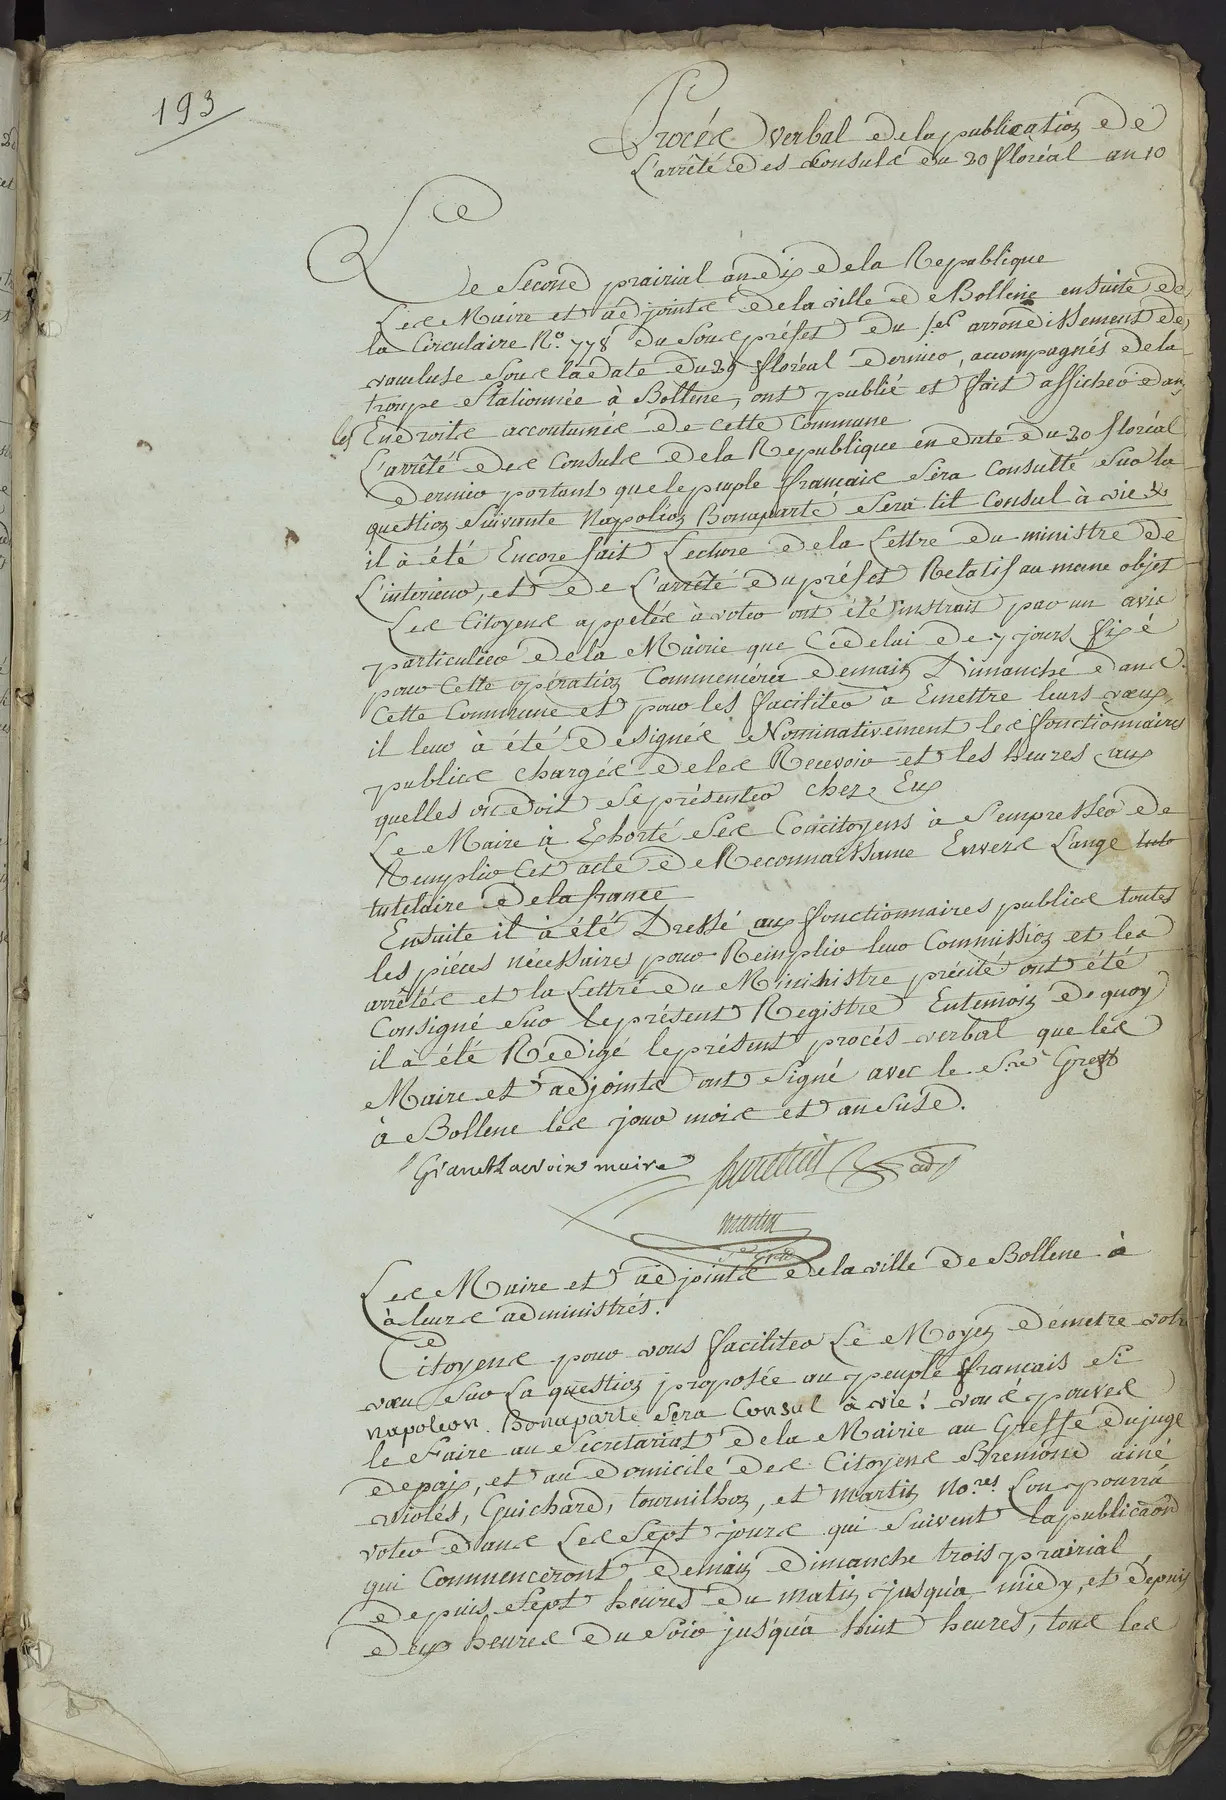 193
Procés verbal de la publication de
L'arrêté des Consuls du 20 floréal an 10
Le Second prairial an dix de la Republique
Les Maire et adjoints de la ville de Bollene ensuite de
la Circulaire No. 778 du Sous préfet du 1er arrondissement de
vaucluse Sous la date du 29 floréal dernier, accompagnés de la
troupe Stationnée à Bollene, ont publié et fait afficher dans
les Endroits accoutumés de cette Commune
L'arrêté des Consuls de la Republique en date du 20 floréal
dernier portant que le peuple français Sera Consulté Sur la
question Suivante Napoléon Bonaparté Sera til Consul à vie &
il à été Encore fait Lecture de la Lettre du ministre de
L'interieur, et de L'arrêté du préfet Relatif au meme objet
Les Citoyens appelés à voter ont été instruit par un avis
particulier de la Mairie que Ce delai de 7 jours fixé
pour Cette opération Commencéra demain Dimanche dans
Cette Commune et pour les faciliter à Emettre leurs vœux,
il leur à été designés Nominativement les fonctionnaires
publics chargés de les Recevoir et les heures aux
quelles on doit Se présenter chez Eux
Le Maire à Exhorté Ses Concitoyens à S'empresser de
Remplir Cet acte de Reconnaissance Envers L'ange tuto
tutelaire de la france
Ensuite il à été Dressé aux fonctionnaires publics toutes
les piéces nécessaires pour Remplir leur Commission et les
arrêtés et la Lettre du Mininistre précité ont été
Consigné Sur le présent Registre En temoin de quoy
il à été Rédigé le présent procés verbal que les
Maire et adjoints ont Signé avec le S.re Greff
à Bollene les jour mois et an Susd.
Granet Lacroix maire adj
martin
Les Maire et adjoints de la ville de Bollene à
à leurs administrés.
Citoyens pour vous faciliter Le Moyen démetre votre
vœu Sur La question proposée au peuple français Si
napoleon Bonaparte Sera Consul à vie! vous pouvés
le Faire au Secretariat de la Mairie au Greffe du juge
de paix, et au domicile des Citoyens Bremond ainé
violés, Guichard, tournilhon, et martin No.res L'on pourrá
voter dans Les Sept jours qui Suivent la publicaon
qui Commenceront demain dimanche trois prairial,
depuis Sept heures du matin jusqu'a midy, et depuis
deux heures du Soir jusqu'a huit heures, tous les